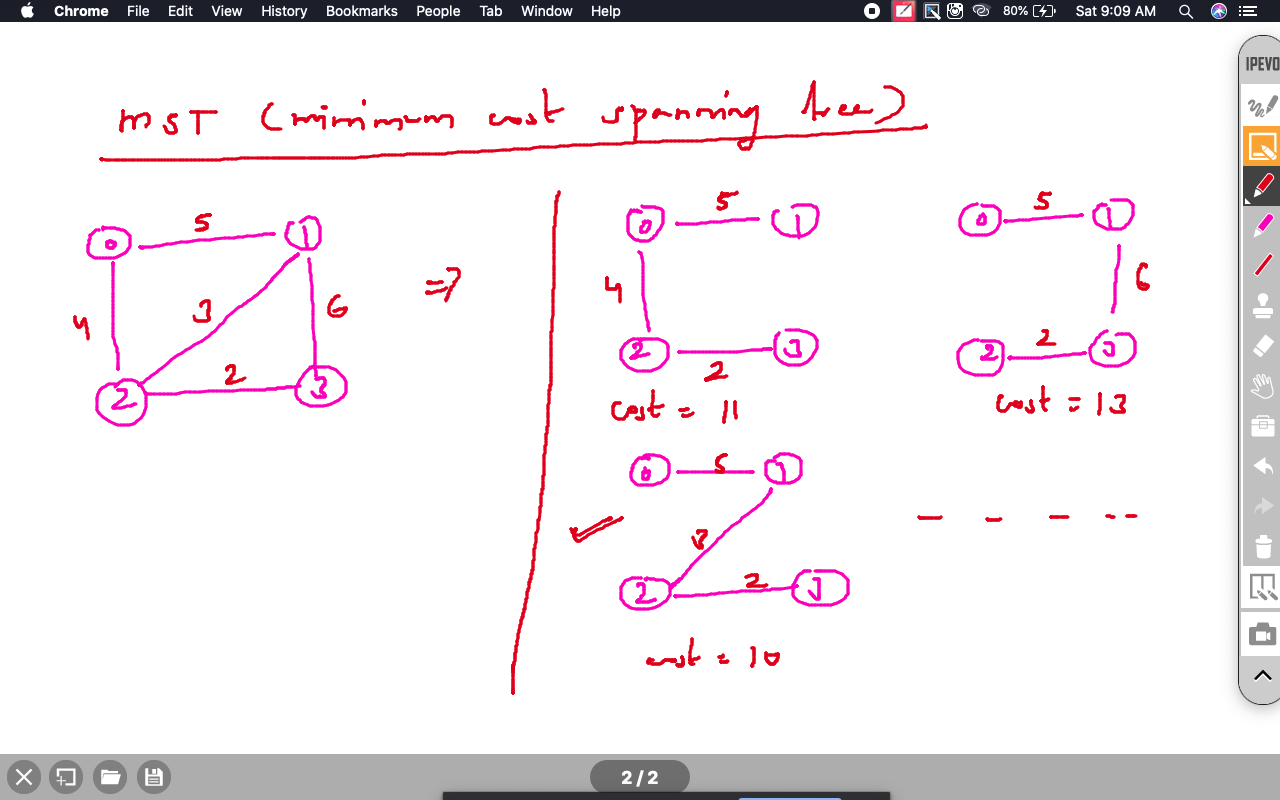 Chrome File Edit View History Bookmarks People Tab Window Help 80% Sat 9:09 AM
IPEVO
MST (minimum cost spanning tree)
0 5 1
4 3 6
2 2 3
=>
0 5 1
4
2 2 3
cost = 11
0 5 1
6
2 2 3
cost = 13
0 5 1
3
2 2 3
cost = 10
2 / 2